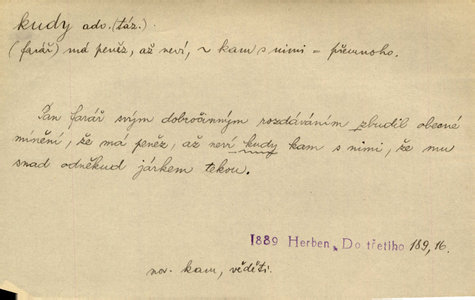 kudy adv. (táz.)
(farář) má peněz, až neví, ~ kam s nimi = přemnoho.
Pan farář svým dobročinným rozdáváním zbudil obecné
mínění, že má peněz, až neví kudy kam s nimi, že mu
snad odněkud járkem tekou.
1889 Herben, Do třetího 189, 16.
nov. kam, věděti.